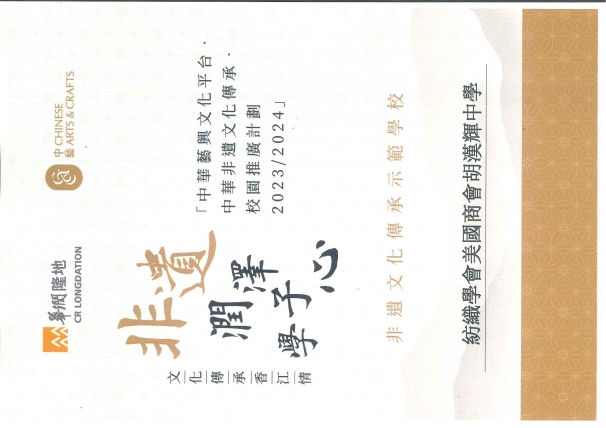 華潤隆地
CR LONGDATION
中藝 CHINESE ARTS & CRAFTS
文化傳承香江情
非遺
潤澤
學子心
「中華藝興文化平台．
中華非遺文化傳承．
校園推廣計劃
2023/2024」
非遺文化傳承示範學校
紡織學會美國商會胡漢輝中學